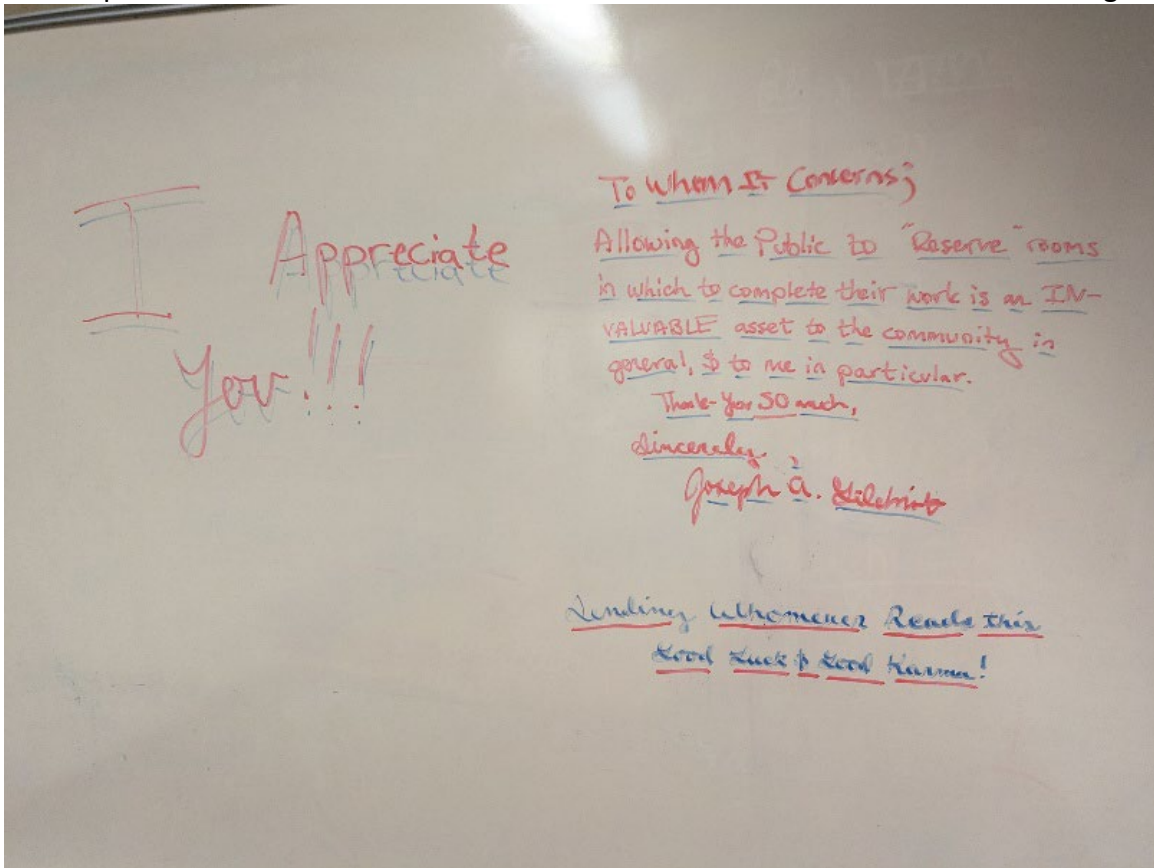 I Appreciate
You!!!
To Whom It Concerns;
Allowing the Public to "Reserve" rooms
in which to complete their work is an IN-
VALUABLE asset to the community in
general, & to me in particular.
Thank-You SO much,
Sincerely,
Joseph A. Gilchrist
Sending Whomever Reads this
Good Luck & Good Karma!